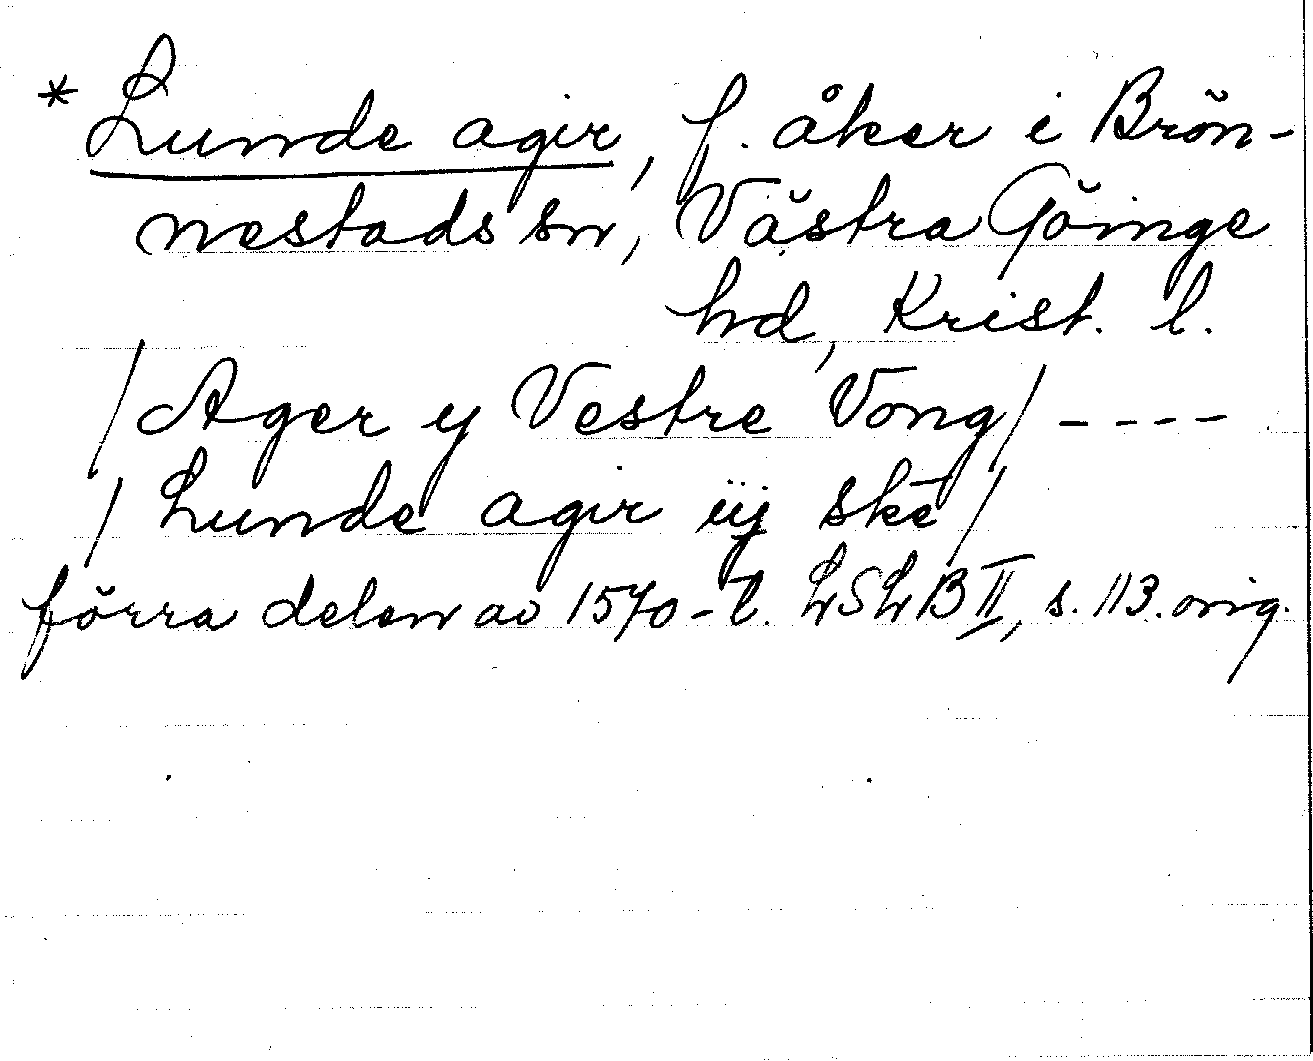 * Lunde agir, f. åker i Brön-
nestads sn, Västra Göinge
hd, Krist. l.
/Ager y Vestre Vong/ ----
/Lunde agir iij skē/
förra delen av 1570-t. LSLB II, s. 113. orig.